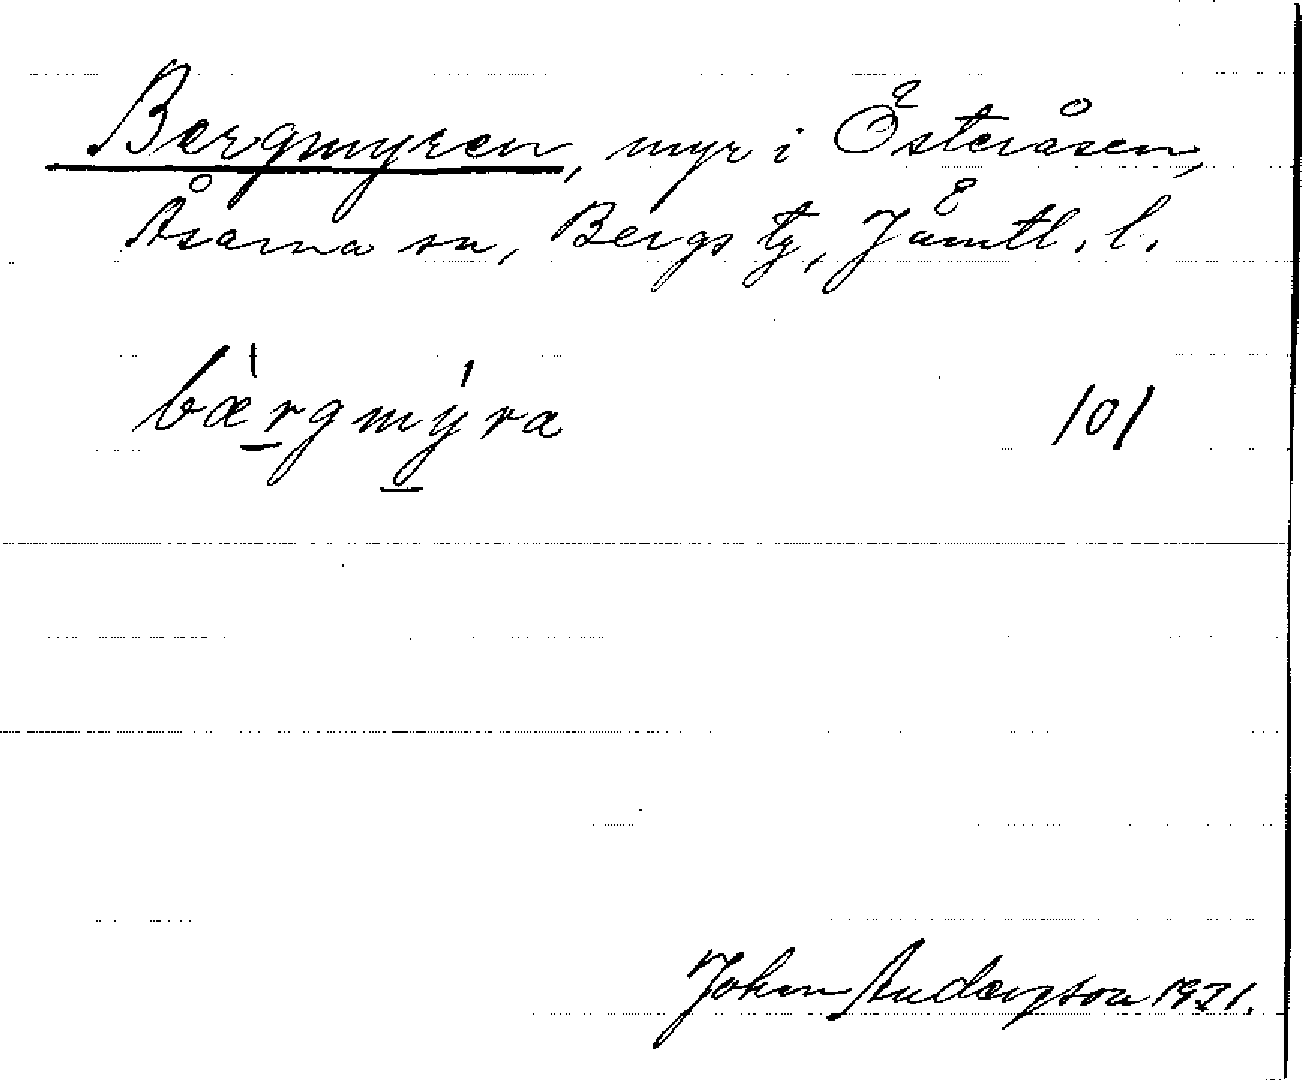 Bergmyren, myr i Österåsen,
Åsarna sn, Bergs tg, Jämtl. l.
bæ̀rgmýra 101
John Anderson 1931.